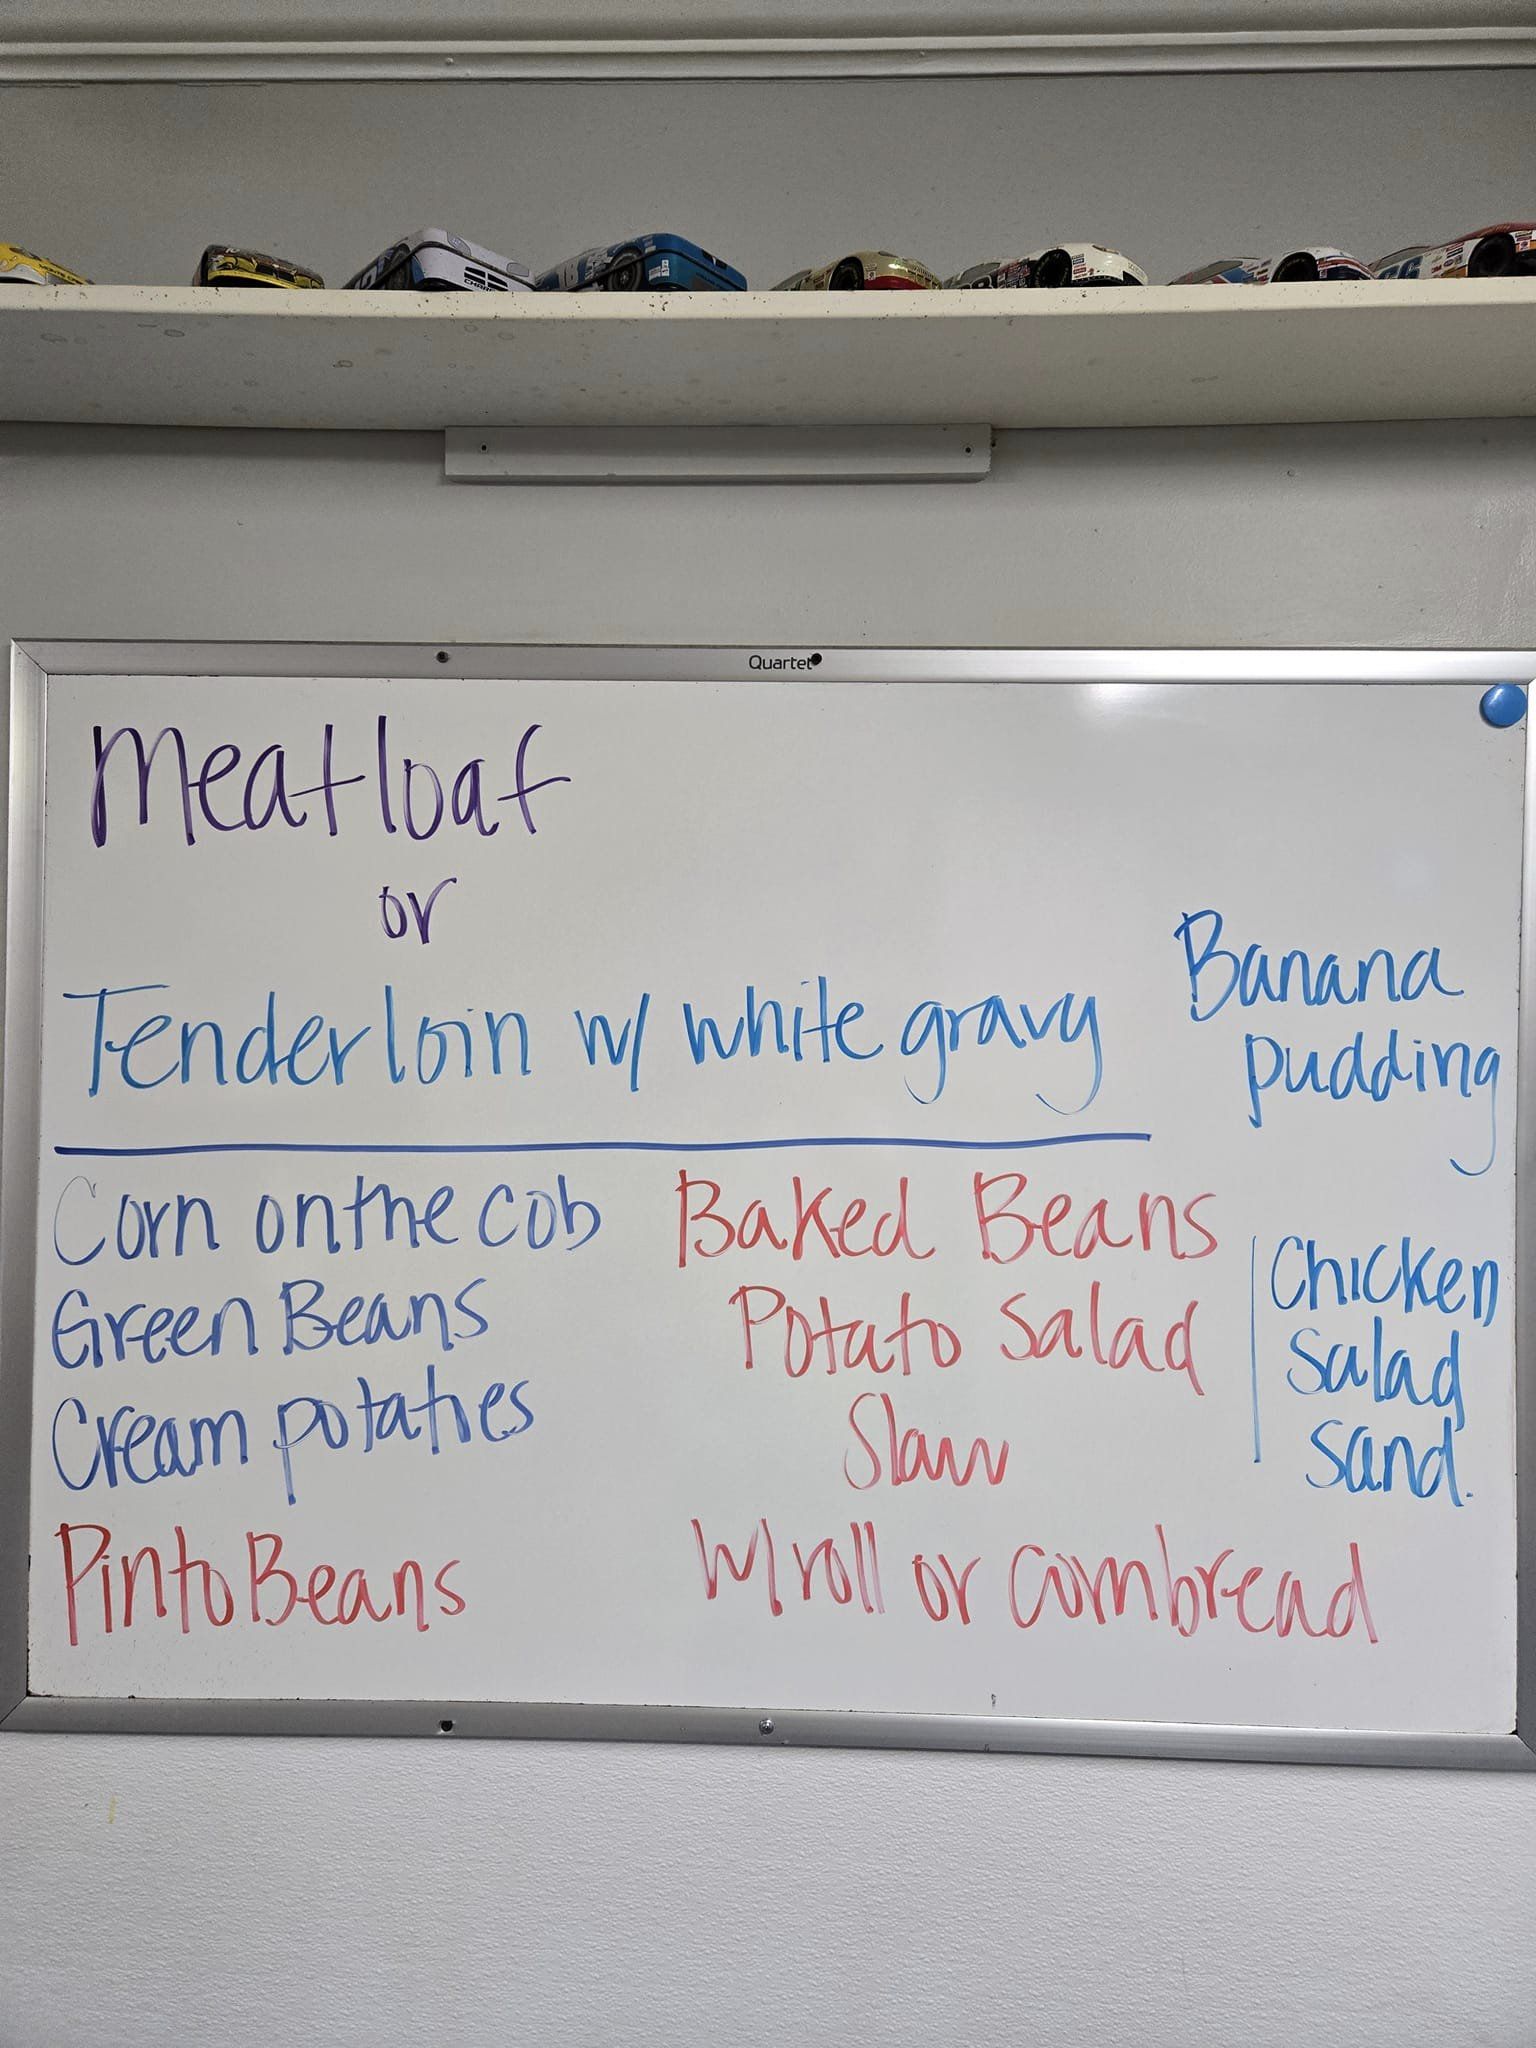 Quartet
Meatloaf
or
Tenderloin w/ white gravy
Banana
pudding
Corn on the cob
Green Beans
Cream potatoes
Pinto Beans
Baked Beans
Potato Salad
Slaw
W/ roll or cornbread
Chicken
Salad
Sand.